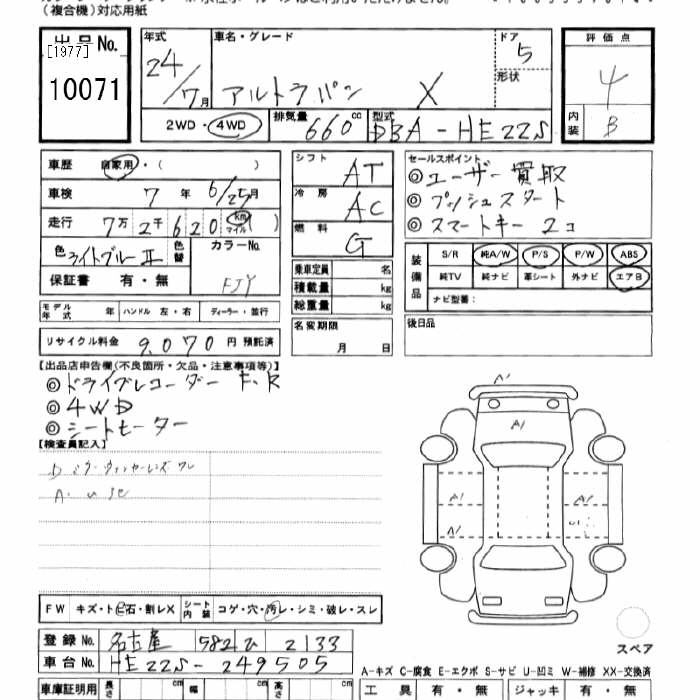 （複合機）対応用紙
出品No.
[1977]
10071
年式
24/7月
車名・グレード
アルトラパン X
ドア
5
形状
評価点
4
内装
B
2WD・4WD
排気量
660 cc
型式
DBA-HE22S
車歴 自家用・（ ）
車検 7 年 6/25月
走行 7万 2千 6 2 0 km マイル
色 ライトブルーⅡ
色替
カラーNo.
FJY
保証書 有・無
モデル年式 年 ハンドル 左・右 ディーラー・並行
リサイクル料金 9,070 円 預託済
シフト
AT
冷房
AC
燃料
G
乗車定員 名
積載量 kg
総重量 kg
名変期限
月 日
セールスポイント
◎ユーザー買取
◎プッシュスタート
◎スマートキー2コ
装備品
S/R 純A/W P/S P/W ABS
純TV 純ナビ 革シート 外ナビ エアB
ナビ型番：
後日品
【出品店申告欄（不良箇所・欠品・注意事項等）】
◎ドライブレコーダー F.R
◎4WD
◎シートヒーター
【検査員記入】
A1
A1
A1
A1
A1
FW キズ・ト(ビ)石・割レX シート内装 コゲ・穴・汚レ・シミ・破レ・スレ
登録No. 名古屋 582 ひ 2133
車台No. HE22S-249505
車庫証明用 長さ cm 幅 cm 高さ
スペア
A-キズ C-腐食 E-エクボ S-サビ U-凹ミ W-補修 XX-交換済
工具 有・無 ジャッキ 有・無